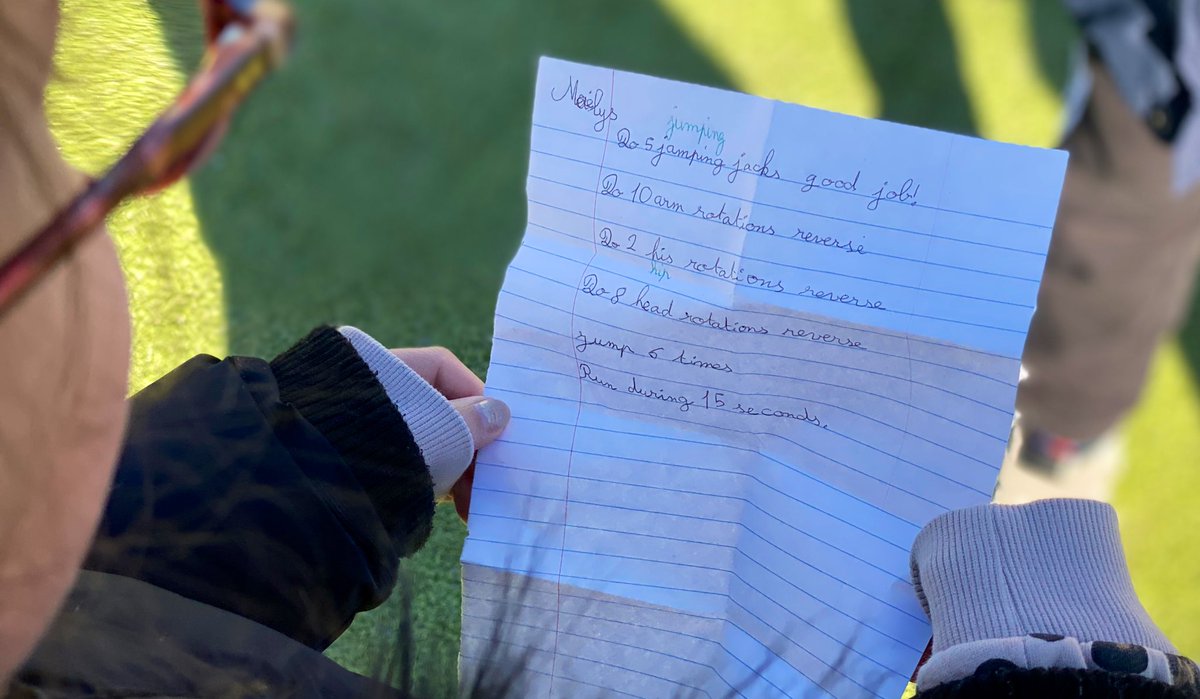 Maëlys
jumping
Do 5 jamping jacks good job!
Do 10 arm rotations reverse
Do 2 his rotations reverse
hip
Do 8 head rotations reverse
jump 6 times
Run during 15 seconds.